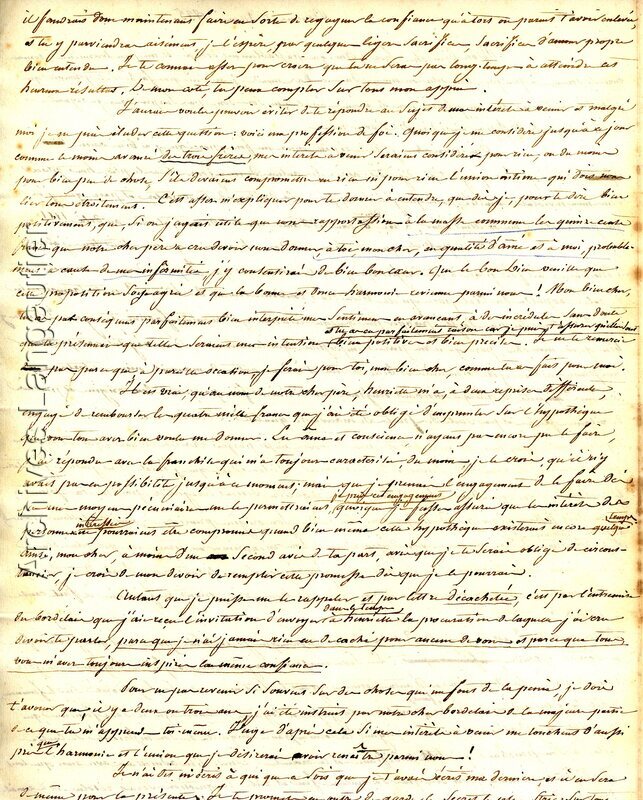 il faudrait donc maintenant faire en sorte de regagner la confiance qu'à tort on parait t'avoir enlevée,
et tu y parviendras aisément je l'espère, par quelques légers sacrifices, sacrifices d'amour propre
bien entendu. Je te connais assez pour croire que tu ne seras pas long-temps à attendre ces
heureux résultats. De mon coté, tu peux compter sur tout mon appui.
J'aurais voulu pouvoir éviter de te répondre au sujet de mes intérêts à venir et malgré
moi je ne puis éluder cette question: voici ma profession de foi. Quoique je me considère jusqu'à ce jour
comme le moins avancé des trois frères, mes intérêts à venir seraient considérés pour rien, ou du moins
pour bien peu de chose, s'ils devaient compromettre en rien l'union intime qui doit nous
lier tous étroitement. C'est assez m'expliquer pour te donner à entendre, que dis-je, pour te dire bien
positivement, que si on jugeait utile que nous rapportassions à la masse commune les quinze cents
francs que notre cher père a cru devoir nous donner, à toi mon cher, en qualité d'ainé et à moi, probable-
ment à cause de mes infirmités, j'y consentirais de bien bon cœur. Que le bon Dieu veuille que
cette proposition soit agréée et que la bonne et douce harmonie revienne parmi nous! Mon bien cher,
tu as par conséquent parfaitement bien interprété mes sentimens en avançant à des incrédules sans doute
et tu as eu parfaitement raison car je puis t'assurer qu'elles sont
que tu présumais que telles seraient mes intentions bien positives et bien précises. Je ne te remercie
pas parce que à pareille occasion, je ferais pour toi, mon bien cher, comme tu as fait pour moi.
Il est vrai, qu'au nom de notre cher père, henriette m'a, à deux reprises différentes,
engagé de rembourser les quatre mille francs que j'ai été obligé d'emprunter sur l'hypothèque
que vous tous avez bien voulu me donner. En âme et conscience n'ayant pas encore pu le faire,
j'ai répondu avec la franchise qui m'a toujours caractérisé, du moins je le crois, qu'il n'y
avait pas eu possibilité jusqu'à ce moment, mais que je prenais l'engagement de le faire dès
je pris cet engagement
que mes moyens pécuniaires me le permettraient, quoique je fusse assuré que les intérêts de
intéressée
personne ne pourraient être compromis quand bien même cette hypothèque existerait encore quelque temps
Ainsi, mon cher, à moins d'un second avis de ta part, avis que je te serais obligé de circons-
tancier, je crois de mon devoir de remplir cette promesse dès que je le pourrai.
Autant que je puisse me le rappeler et par lettre décachetée, c'est par l'entremise
dans le temps
du bordelais que j'ai reçu l'invitation d'envoyer à henriette la procuration de laquelle j'ai cru
devoir te parler, parce que je n'ai jamais rien eu de caché pour aucun de vous et parce que tous
vous m'avez toujours inspiré la même confiance.
Pour ne pas revenir si souvent sur des choses qui me font de la peine, je dois
t'avouer qu'il y a deux ou trois ans, j'ai été instruit par notre cher bordelais de la majeure partie
de ce que tu m'apprens toi-même. Juge d'après cela si mes intérêts à venir me touchent d'aussi
près que l'harmonie et l'union que je désirerais voir renaître parmi nous!
Je n'ai dit ni écrit à qui que ce soit que je t'avais écris ma dernière et il en sera
de même pour la présente. Je te promets en outre de garder le secret
Archives Langeurie